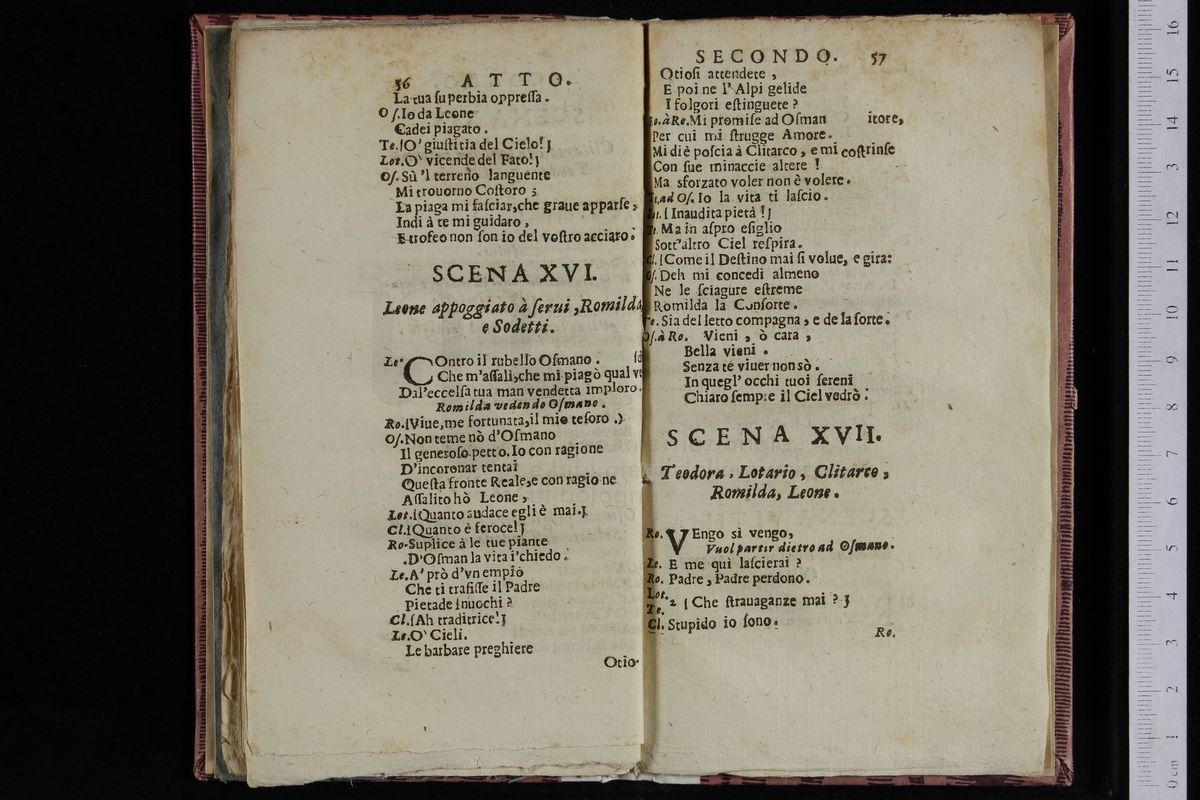 56 ATTO.
La tua superbia oppressa.
Os. Io da Leone
Cadei piagato.
Te. [O' giustitia del Cielo!]
Lot. O' vicende del Fato!]
Os. Sù 'l terreno languente
Mi trouorno Costoro;
La piaga mi fasciar, che graue apparse,
Indi à te mi guidaro,
E trofeo non son io del vostro acciaro.
SCENA XVI.
Leone appoggiato à serui, Romilda,
e Sodetti.
Le. COntro il rubello Osmano.
Che m'assalì, che mi piagò qual
Dal'eccelsa tua man vendetta imploro.
Romilda vedendo Osmano.
Ro. [Viue, me fortunata, il mio tesoro.)
Os. Non teme nò d'Osmano
Il generoso petto. Io con ragione
D'incoronar tentai
Questa fronte Reale, e con ragione
Assalito hò Leone,
Lot. [Quanto audace egli è mai.]
Cl. [Quanto è feroce!]
Ro. Suplice à le tue piante
.D'Osman la vita i'chiedo.
Le. A' prò d'vn empio
Che ti trafisse il Padre
Pietade inuochi?
Cl. [Ah traditrice!]
Le. O' Cieli.
Le barbare preghiere
Otio-
SECONDO. 57
Otiosi attendete,
E poi ne l'Alpi gelide
I folgori estinguete?
Ro. à Ro. Mi promise ad Osman itore,
Per cui mi strugge Amore.
Mi diè poscia à Clitarco, e mi costrinse
Con sue minaccie altere!
Ma sforzato voler non è volere.
Te. ad Os. Io la vita ti lascio.
Lot. [Inaudita pietà!]
Te. Ma in aspro esiglio
Sott'altro Ciel respira.
Cl. [Come il Destino mai si volue, e gira:
Os. Deh mi concedi almeno
Ne le sciagure estreme
Romilda la Consorte.
Te. Sia del letto compagna, e de la sorte.
Os. à Ro. Vieni, ò cara,
Bella vieni.
Senza te viuer non sò.
In quegl'occhi tuoi sereni
Chiaro sempre il Ciel vedrò.
SCENA XVII.
Teodora, Lotario, Clitarco,
Romilda, Leone.
Ro. VEngo sì vengo,
Vuol partir dietro ad Osmano.
Le. E me quì lascierai?
Ro. Padre, Padre perdono.
Lot.
Te. 2 [Che strauaganze mai?]
Cl. Stupido io sono.
Ro.